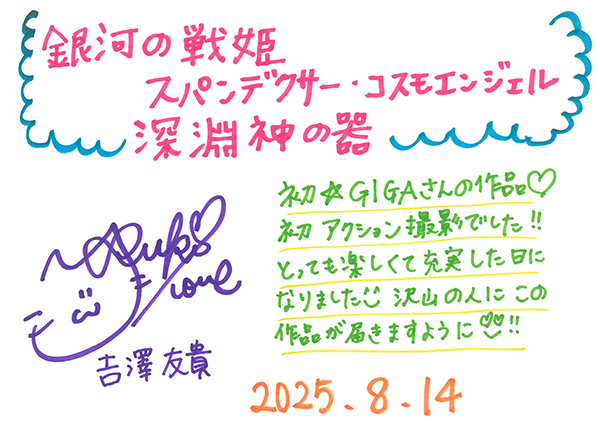 銀河の戦姫
スパンデクサー・コスモエンジェル
深淵神の器
初☆GIGAさんの作品♡
初アクション撮影でした!!
とっても楽しくて充実した日に
なりました 沢山の人にこの
作品が届きますように♡♡!!
吉澤友貴
2025.8.14